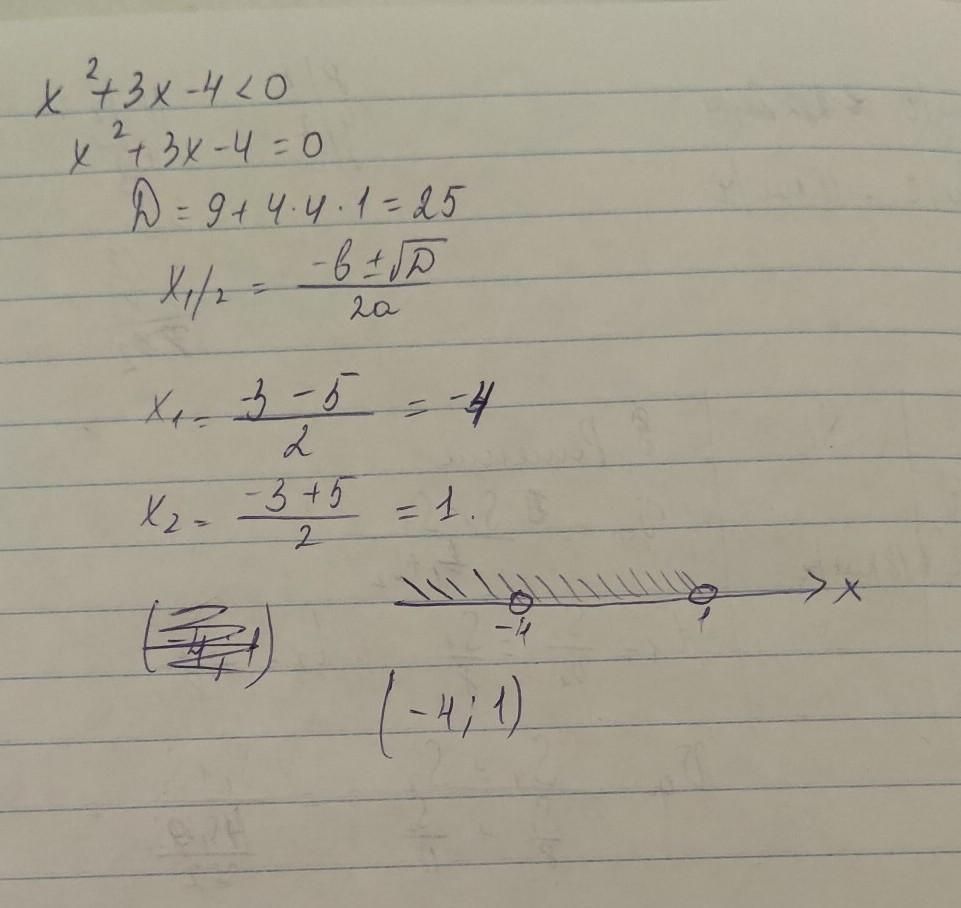 x² + 3x - 4 < 0
x² + 3x - 4 = 0
D = 9 + 4 · 4 · 1 = 25
x₁/₂ = (-b ± √D) / 2a
x₁ = (-3 - 5) / 2 = -4
x₂ = (-3 + 5) / 2 = 1.
-4 1 x
(-4; 1)